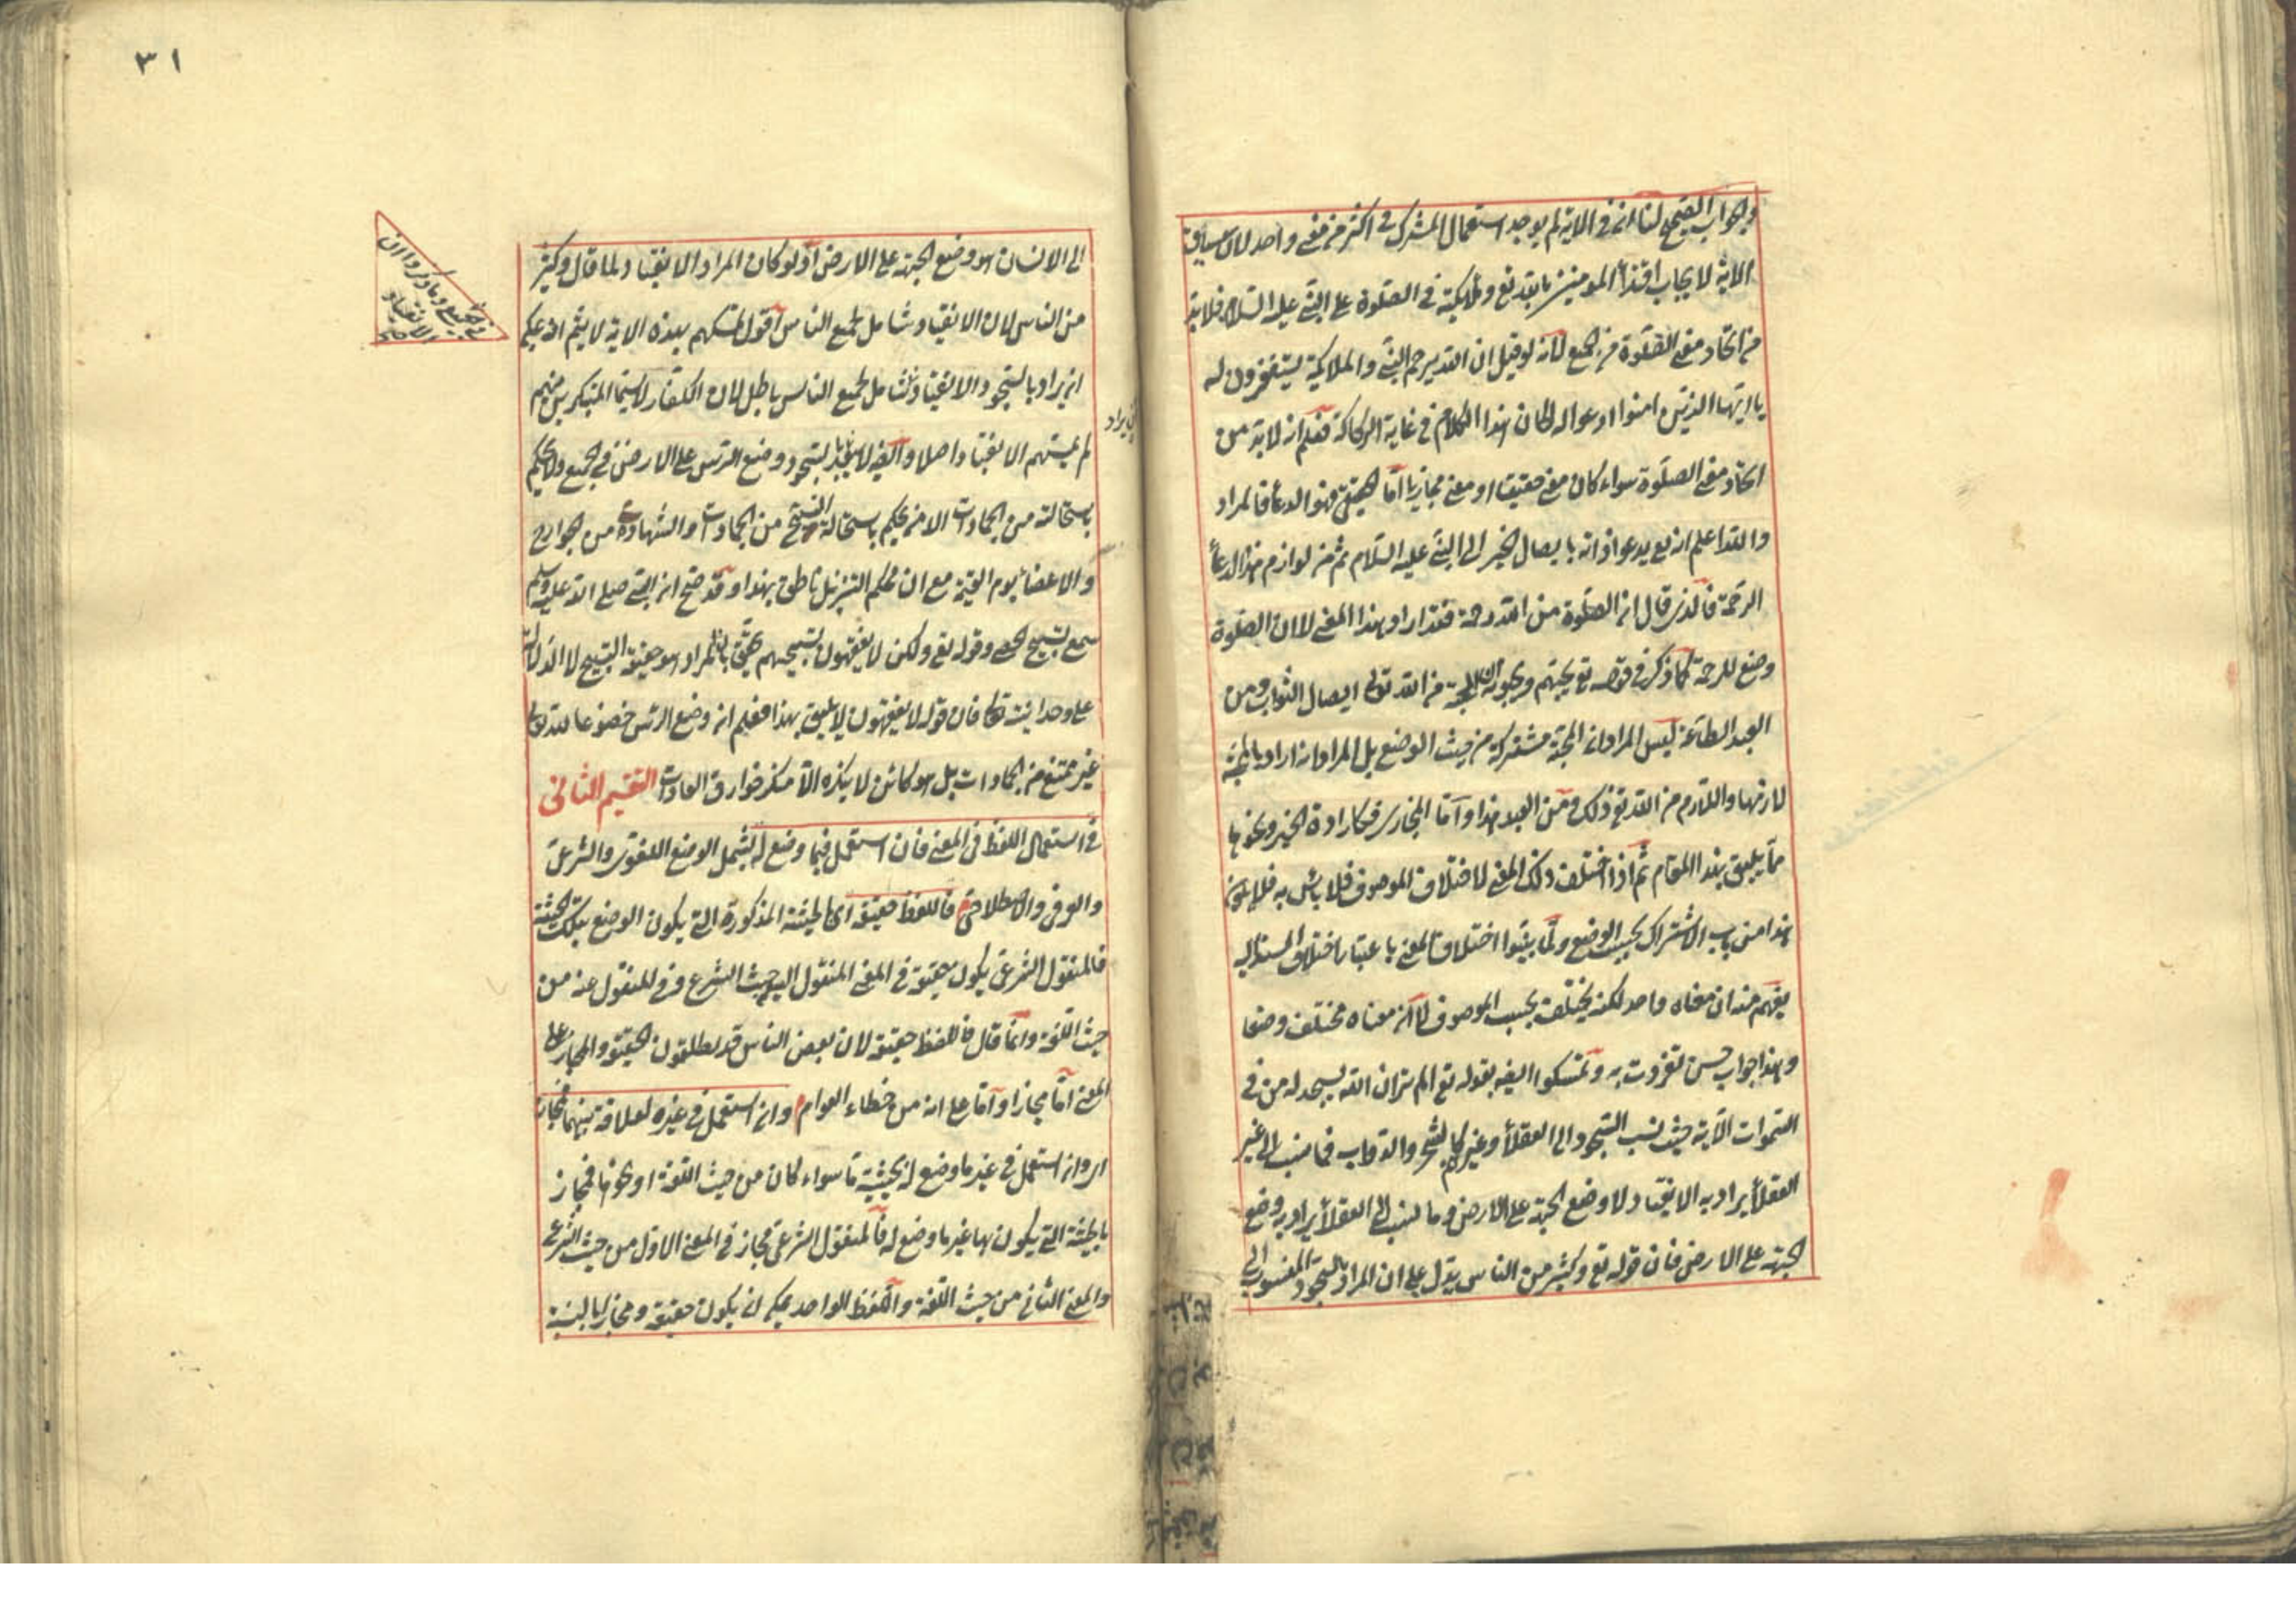 والجواب الصحيح لنا ان في الاية لم يوجد استعمال المشترك في اكثر من معنى واحد لان سياق
الاية لايجاب اقتداء المومنين بالله تع وملائكته في الصلوة على النبي عليه السلام فلا بد
من اتحاد معنى الصلوة من الجميع لانه لو قيل ان الله يرحم النبي والملائكة يستغفرون له
يا ايها الذين امنوا ادعوا له لكان هذا الكلام في غاية الركاكة فعلم انه لا بد من
اتحاد معنى الصلوة سواء كان معنى حقيقيا او معنى مجازيا اما الحقيقي فهو الدعا فالمراد
والله اعلم انه تع يدعو ذاته بايصال الخير الى النبي عليه السلام ثم من لوازم هذا الدعا
الرحمة فالذي قال ان الصلوة من الله رحمة فقد اراد هذا المعنى لا ان الصلوة
وضع للرحمة كما ذكر في قوله تع يحبهم ويحبونه ان المحبة من الله تع ايصال الثواب ومن
العبد الطاعة ليس المراد ان المحبة مشتركة من حيث الوضع بل المراد انه اراد بالمحبة
لازمها واللازم من الله تع ذلك ومن العبد هذا واما المجازي فكارادة الخير ونحوها
مما يليق بهذا المقام ثم اذا اختلف ذلك المعنى لاختلاف الموصوف فلا باس به فلا يكون
هذا من باب الاشتراك بحسب الوضع ولما بينوا اختلاف المعنى باعتبار اختلاف المسند اليه
يفهم منه ان معناه واحد لكنه يختلف بحسب الموصوف لا ان معناه مختلف وضعا
وهذا جواب حسن تفردت به وتمسكوا ايضا بقوله تع الم تر ان الله يسجد له من في
السموات الاية حيث نسب السجود الى العقلاء وغيرهم كالشجر والدواب فما نسب الى غير
العقلاء يراد به الانقياد لا وضع الجبهة على الارض وما نسب الى العقلاء يراد به وضع
الجبهة على الارض فان قوله تع وكثير من الناس يدل على ان المراد بالسجود المنسوب الى
٣١
الى الانسان هو وضع الجبهة على الارض اذ لو كان المراد الانقياد لما قال وكثير
من الناس لان الانقياد شامل لجميع الناس اقول تمسكهم بهذه الاية لا يتم اذ يمكن
ان يراد بالسجود الانقياد شامل لجميع الناس باطل لان الكفار لا سيما المتكبرين منهم
لم يمسهم الانقياد اصلا وايضا لا يبعد ان يراد بالسجود وضع الرأس على الارض في الجميع ولا يحكم
باستحالته من الجمادات الا من يحكم باستحالة التسبيح من الجمادات والشهادة من الجوارح
والاعضاء يوم القيمة مع ان محكم التنزيل ناطق بهذا وقد صح ان النبي صلى الله عليه وسلم
سمع تسبيح الحصى وقوله تع ولكن لا يفقهون تسبيحهم يحقق ان المراد هو حقيقة التسبيح لا الدلالة
على وحدانيته تعالى فان قوله لا يفقهون لا يليق بهذا فعلم ان وضع الرأس خضوعا لله تعالى
غير ممتنع من الجمادات بل هو كائن لا ينكره الا منكر خوارق العادات التقسيم الثانى
في استعمال اللفظ في المعنى فان استعمل فيما وضع له يشمل الوضع اللغوي والشرعي
والعرفي والاصطلاحي فاللفظ حقيقة اي بالحيثية المذكورة التي يكون الوضع بتلك الحيثية
فالمنقول الشرعي يكون حقيقة في المعنى المنقول اليه من حيث الشرع وفي المنقول عنه من
حيث اللغة وانما قال فاللفظ حقيقة لان بعض الناس قد يطلقون الحقيقة والمجاز على
المعنى اما مجازا واما على انه من خطاء العوام وان استعمل في غيره لعلاقة بينهما فمجاز
اي وان استعمل في غير ما وضع له بحيثية ما سواء كان من حيث اللغة او نحوها فمجاز
بالحيثية التي يكون بها غير ما وضع له فالمنقول الشرعي مجاز في المعنى الاول من حيث الشرع
والمعنى الثاني من حيث اللغة واللفظ الواحد يمكن ان يكون حقيقة ومجازا بالنسبة
في الجميع وما ذكروا ان
الانقياد
ان يراد